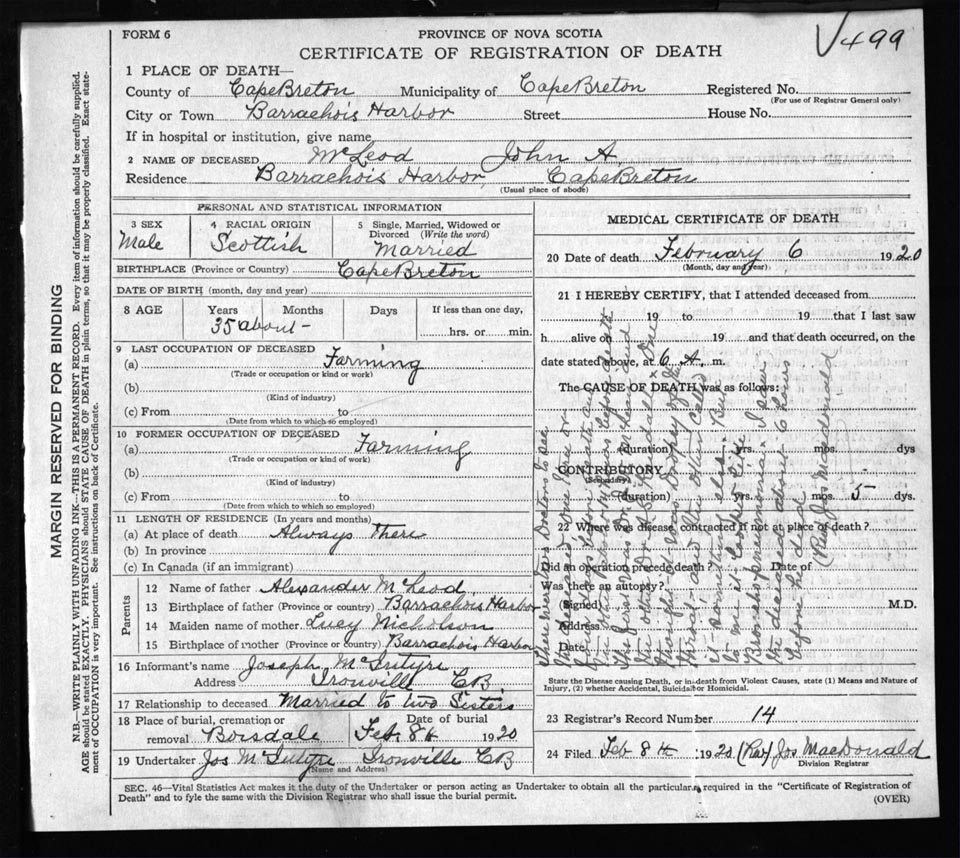 FORM 6
PROVINCE OF NOVA SCOTIA
√499
CERTIFICATE OF REGISTRATION OF DEATH
1 PLACE OF DEATH—
County of CapeBreton Municipality of CapeBreton Registered No.
(For use of Registrar General only)
City or Town Barrachois Harbor Street House No.
If in hospital or institution, give name
2 NAME OF DECEASED McLeod John A.
Residence Barrachois Harbor, CapeBreton
(Usual place of abode)
PERSONAL AND STATISTICAL INFORMATION
3 SEX 4 RACIAL ORIGIN 5 Single, Married, Widowed or Divorced (Write the word)
Male Scottish Married
BIRTHPLACE (Province or Country) CapeBreton
DATE OF BIRTH (month, day and year)
8 AGE Years Months Days If less than one day,
35 about- hrs. or min.
9 LAST OCCUPATION OF DECEASED
(a) Farming
(Trade or occupation or kind or work)
(b)
(Kind of industry)
(c) From to
(Date from which to which so employed)
10 FORMER OCCUPATION OF DECEASED
(a) Farming
(Trade or occupation or kind of work)
(b)
(Kind of industry)
(c) From to
(Date from which to which so employed)
11 LENGTH OF RESIDENCE (In years and months)
(a) At place of death Always there
(b) In province
(c) In Canada (if an immigrant)
Parents
12 Name of father Alexander McLeod
13 Birthplace of father (Province or country) Barrachois Harbor
14 Maiden name of mother Lucy Nicholson
15 Birthplace of mother (Province or country) Barrachois Harbor
16 Informant's name Joseph McIntyre
Address Ironville CB
17 Relationship to deceased Married to two Sisters
18 Place of burial, cremation or removal Boisdale Date of burial Feb. 8th 1920
19 Undertaker Jos McIntyre Ironville CB
(Name and Address)
MEDICAL CERTIFICATE OF DEATH
20 Date of death February 6 1920
(Month, day and year)
21 I HEREBY CERTIFY, that I attended deceased from
19 to 19 that I last saw
h alive on 19 and that death occurred, on the
date stated above, at 6 A. m.
The CAUSE OF DEATH was as follows:
(duration) yrs. mos. dys
CONTRIBUTORY
(Secondary)
(duration) yrs. mos. 5 dys.
22 Where was disease contracted if not at place of death?
Did an operation precede death? Date of
Was there an autopsy?
(Signed) M.D.
Address
Date
There were two Doctors to see
the deceased one five or
before death and
the other
before death
The first was
and
the other Dr
One
thought it was Dropsy of the
throat - and the other called
it something else. But
to me it looked like
Broncho pneumonia. I saw
the deceased about 6 hours
before he died.
(Rev) Jos MacDonald
State the Disease causing Death, or in death from Violent Causes, state (1) Means and Nature of
Injury, (2) whether Accidental, Suicidal or Homicidal.
23 Registrar's Record Number 14
24 Filed Feb 8th 1920 (Rev) Jos MacDonald
Division Registrar
SEC. 46—Vital Statistics Act makes it the duty of the Undertaker or person acting as Undertaker to obtain all the particulars required in the "Certificate of Registration of
Death" and to fyle the same with the Division Registrar who shall issue the burial permit.
(OVER)
MARGIN RESERVED FOR BINDING
N.B.—WRITE PLAINLY WITH UNFADING INK—THIS IS A PERMANENT RECORD. Every item of information should be carefully supplied.
AGE should be stated EXACTLY. PHYSICIANS should STATE CAUSE OF DEATH in plain terms, so that it may be properly classified. Exact state-
ment of OCCUPATION is very important. See instructions on back of Certificate.